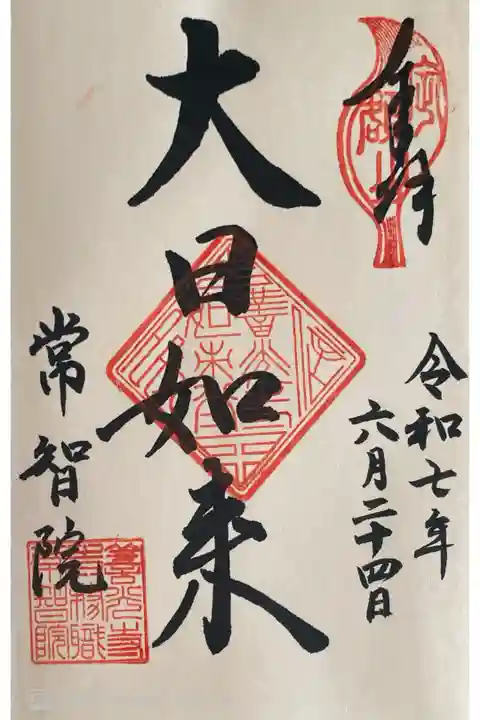 奉拝
令和七年
六月二十四日
大日如来
常智院